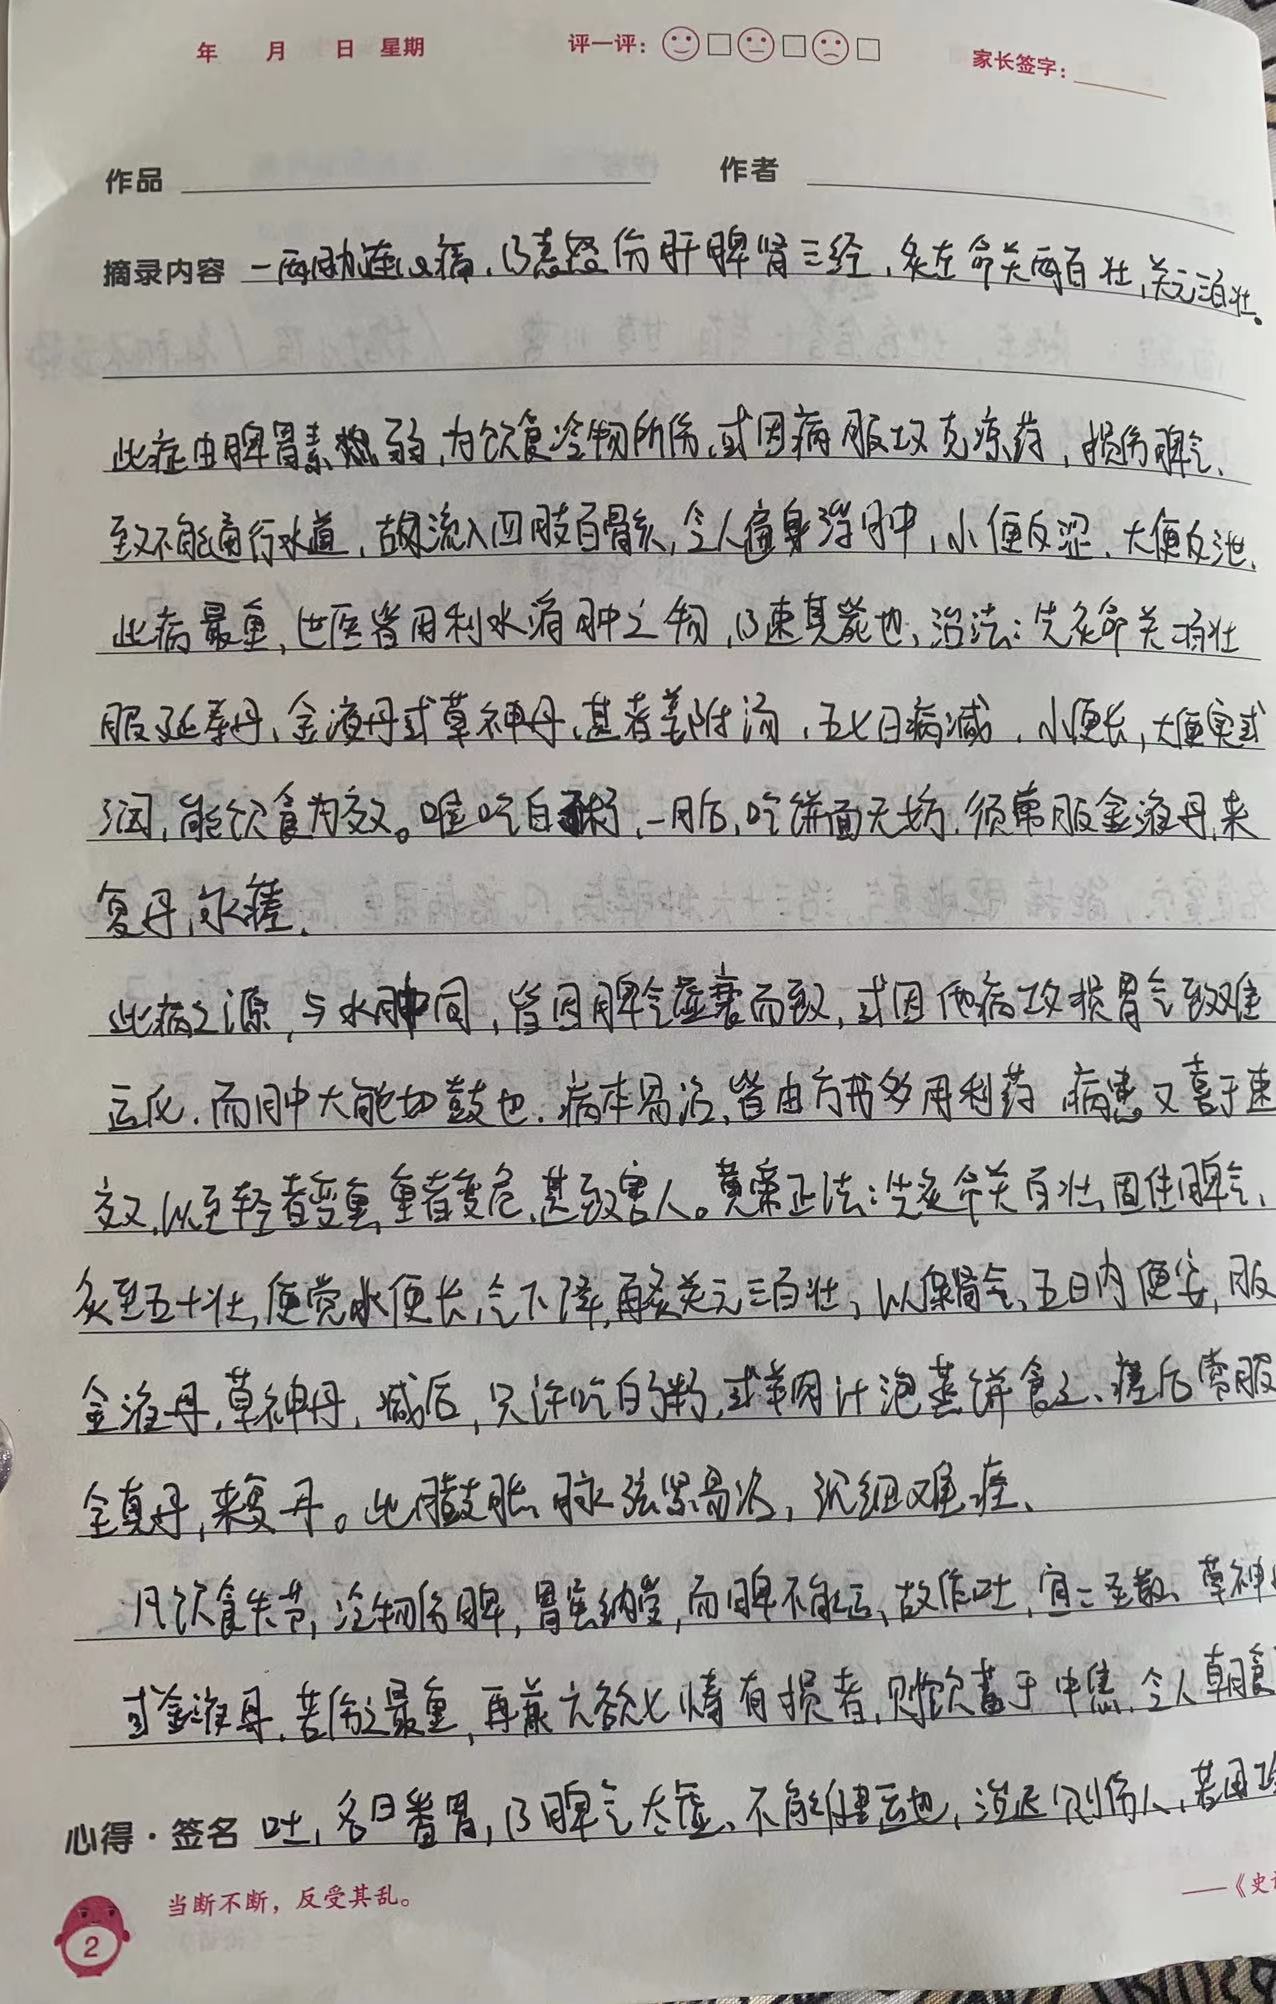 年 月 日 星期 评一评： 家长签字：
作品 作者
摘录内容 一两胁连心痛，乃恚怒伤肝脾肾三经，灸左命关两百壮，关元三百壮。
此症由脾胃素弱，为饮食冷物所伤，或因病服攻克凉药，损伤脾气，
致不能通行水道，故流入四肢百骸，令人遍身浮肿，小便反涩，大便反泄，
此病最重，世医皆用利水消肿之物，乃速其毙也，治法：先灸命关二百壮
服延寿丹、金液丹或草神丹，甚者姜附汤，五七日病减，小便长，大便实或
润，能饮食为效。唯吃白粥，一月后，吃饼面无妨，须常服金液丹，来
复丹，永瘥，
此病之源，与水肿同，皆因脾气虚衰而致，或因他病攻损胃气致难
运化，而肿大能如鼓也。病本易治，皆由方书多用利药 病患又喜于速
效，以至轻者变重，重者变危，甚致害人。黄帝正法：先灸命关百壮，固住脾气，
灸至五十壮，便觉水便长，气下降，再灸关元三百壮，以保肾气，五日内便安，服
金液丹，草神丹，减后，只许吃白粥，或羊肉汁泡蒸饼食之、瘥后常服
全真丹，来复丹。此臌胀脉弦紧易治，沉细难痊、
凡饮食失节，冷物伤脾，胃虽纳受，而脾不能运，故作吐，宜二圣散、草神
或金液丹，若伤之最重，再兼六欲七情有损者，则饮蓄于中焦，令人朝食
心得·签名 吐，名曰番胃，乃脾气太虚、不能健运也，治迟则伤人，若因攻
当断不断，反受其乱。
——《史
2